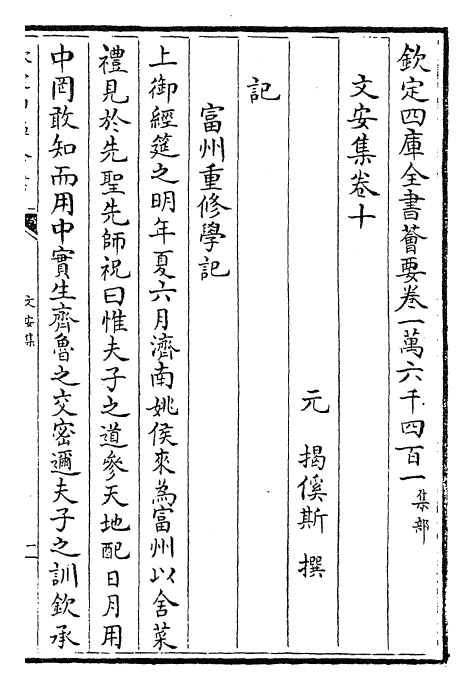 欽定四庫全書薈要卷一萬六千四百一集部
文安集卷十
元 揭傒斯 撰
記
富州重修學記
上御經筵之明年夏六月濟南姚侯來為富州以舍菜
禮見於先聖先師祝曰惟夫子之道參天地配日月用
中罔敢知而用中實生齊魯之交密邇夫子之訓欽承
文安集